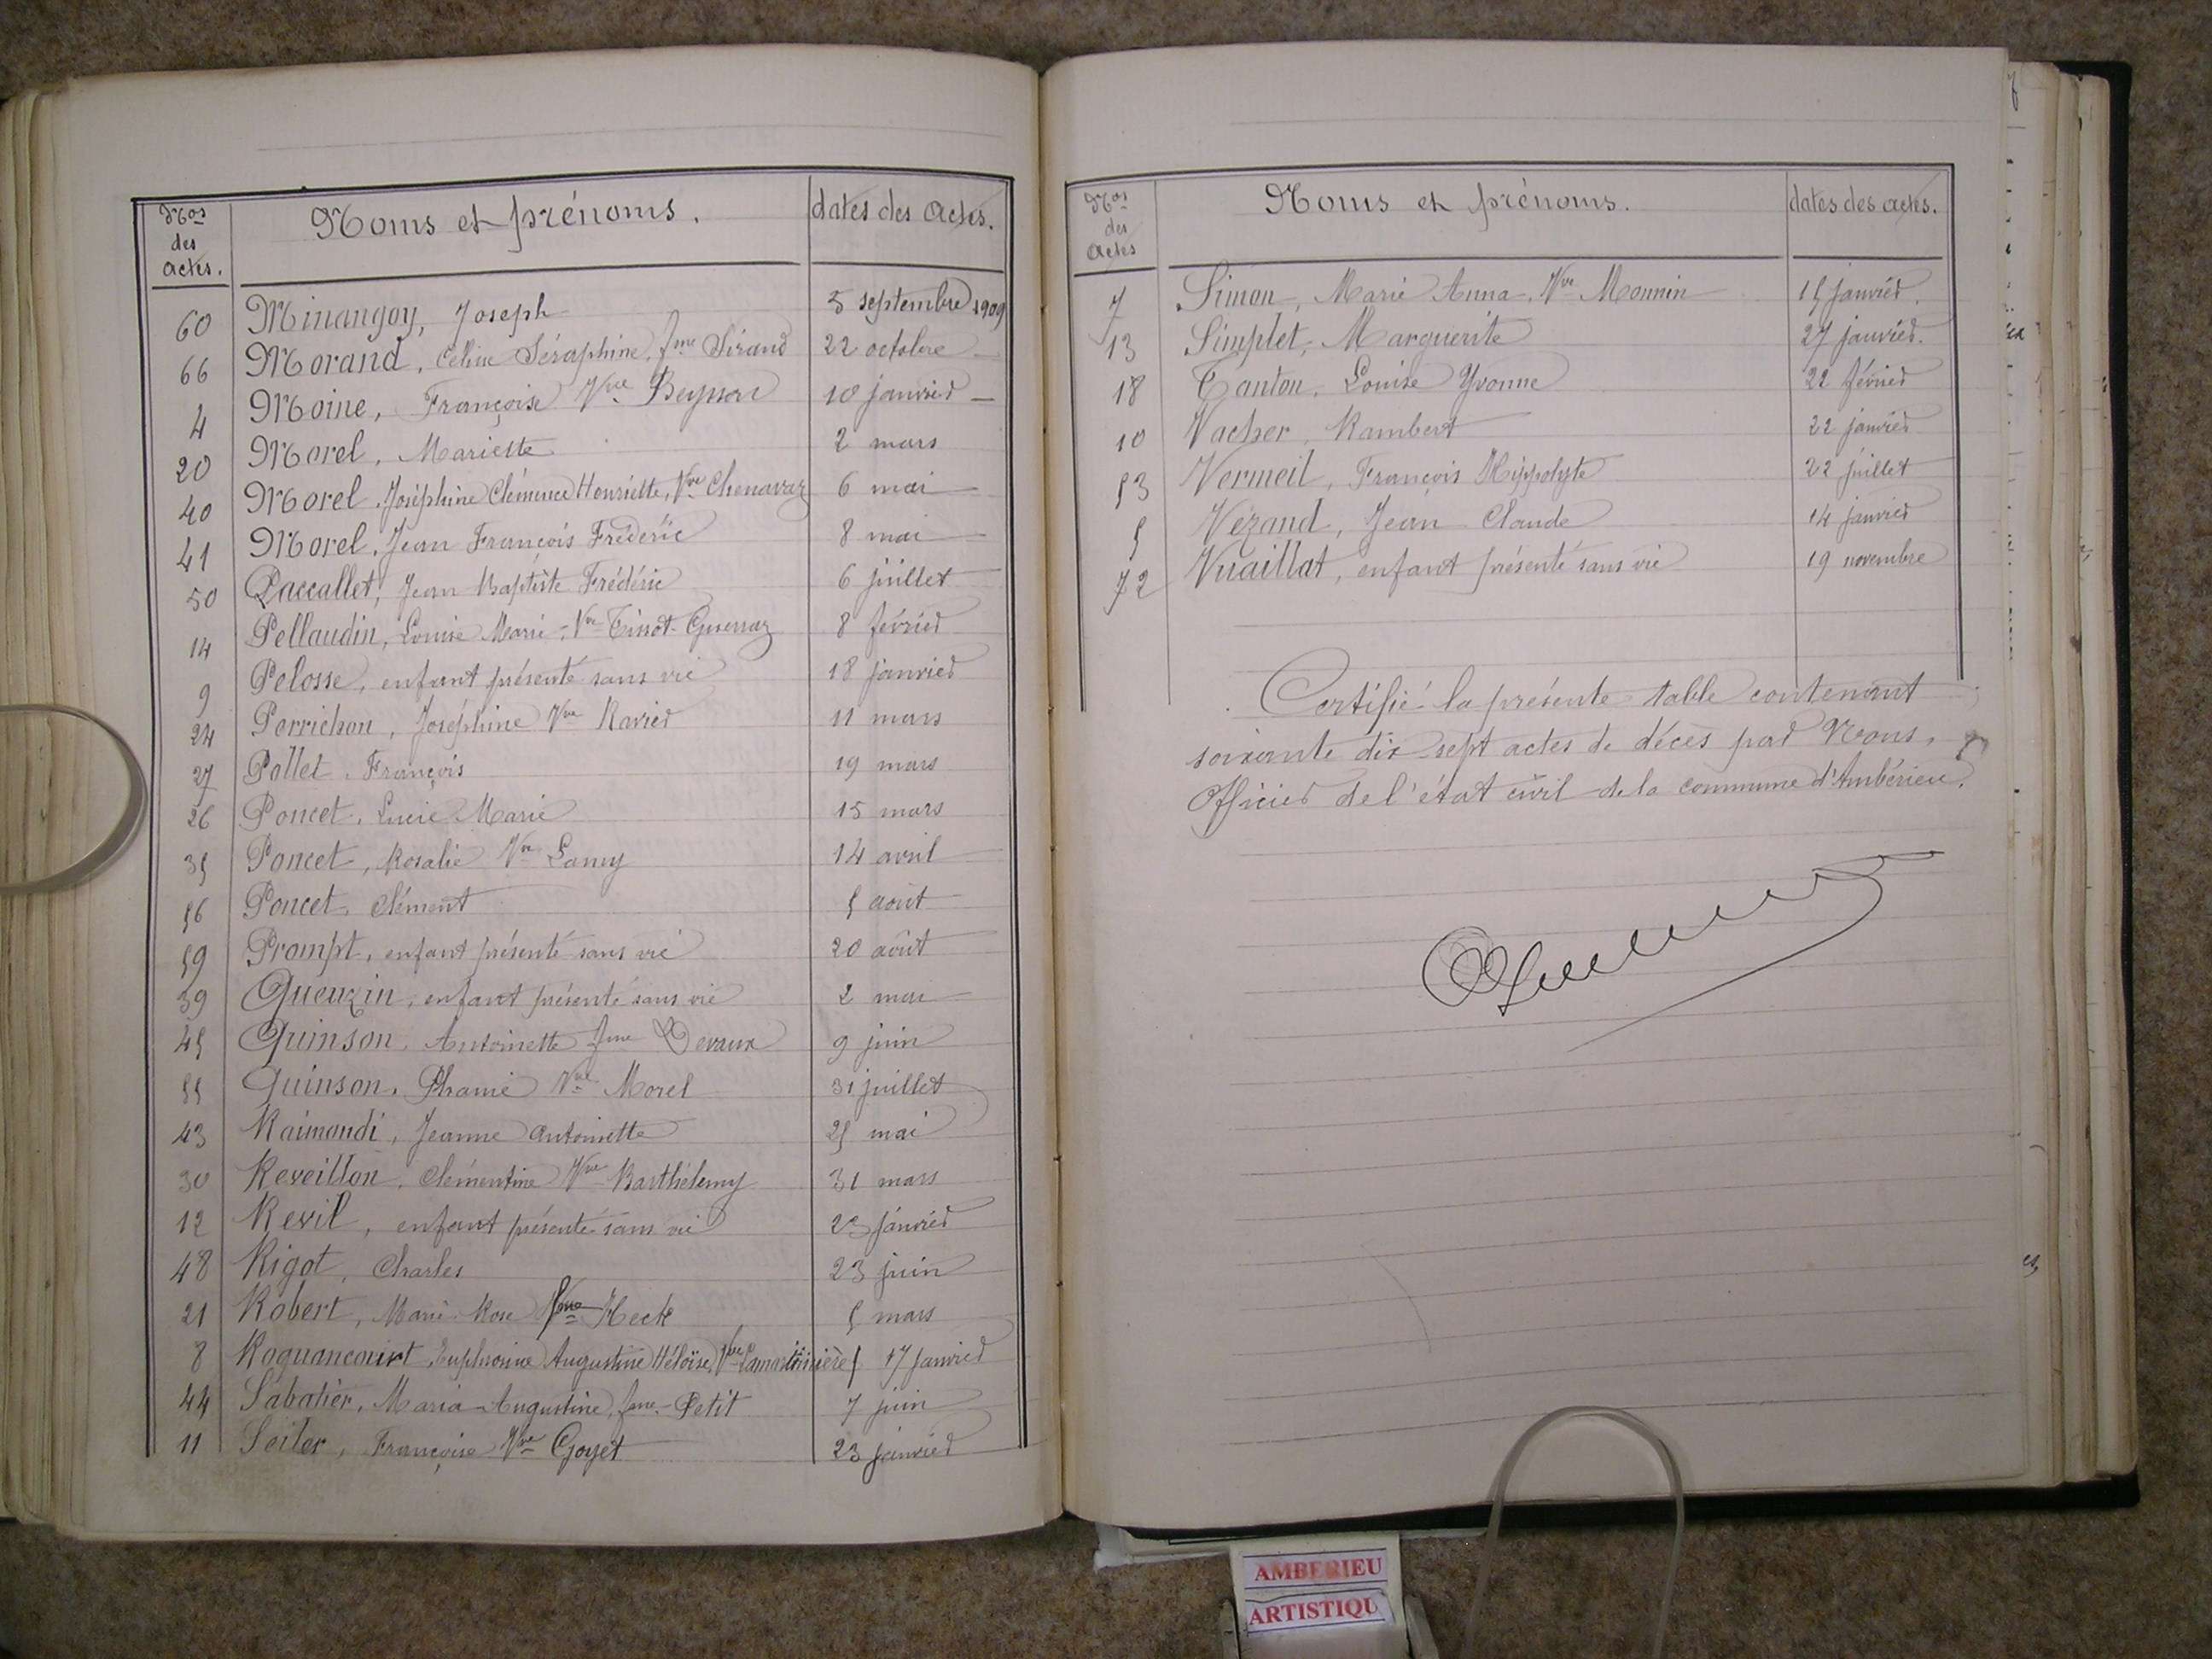 Nos des actes. Noms et prénoms. dates des actes.
60 Minangoy, Joseph 5 septembre 1909
66 Morand, Céline Séraphine, fme Sirand 22 octobre
4 Moine, Françoise Vve 10 janvier
20 Morel, Mariette 2 mars
40 Morel, Joséphine Clémence Henriette, Vve Chenavaz 6 mai
41 Morel, Jean François Fréderic 8 mai
50 Paccallet, Jean Baptiste Frédéric 6 juillet
14 Pellaudin, Louise Marie, Vve Tissot-Guerraz 8 février
9 Pelosse, enfant présenté sans vie 18 janvier
24 Perrichon, Joséphine Vve Ravier 11 mars
27 Pollet, François 19 mars
26 Poncet, Lucie Marie 15 mars
35 Poncet, Rosalie Vve Lamy 14 avril
56 Poncet, Clément 5 août
59 Prompt, enfant présenté sans vie 20 août
39 Queuzin, enfant présenté sans vie 2 mai
45 Quinson, Antoinette fme Devaux 9 juin
55 Quinson, Phanie Vve Morel 31 juillet
43 Raimondi, Jeanne Antoinette 25 mai
30 Reveillon, Clémentine Vve Barthélemy 31 mars
12 Revil, enfant présenté sans vie 23 janvier
48 Rigot, Charles 23 juin
21 Robert, Marie Rose Heck 5 mars
8 Roquancourt, Euphrosine Augustine Héloïse, Vve Lamartinière 17 janvier
44 Sabatier, Maria Augustine, fme Petit 7 juin
11 Seiler, Françoise Vve Goyet 23 janvier
Nos des Actes Noms et prénoms. dates des actes.
7 Simon, Marie Anna, Vve Monnin 15 janvier.
13 Simplet, Marguerite 27 janvier.
18 Tanton, Louise Yvonne 22 février
10 Vacher, Rambert 22 janvier
53 Vermeil, François Hippolyte 22 juillet
5 Vézand, Jean Claude 14 janvier
72 Vuaillat, enfant présenté sans vie 19 novembre
Certifié la présente table contenant
soixante dix-sept actes de décès par Nous,
Officier de l'état civil de la commune d'Ambérieu.
AMBERIEU
ARTISTIQU